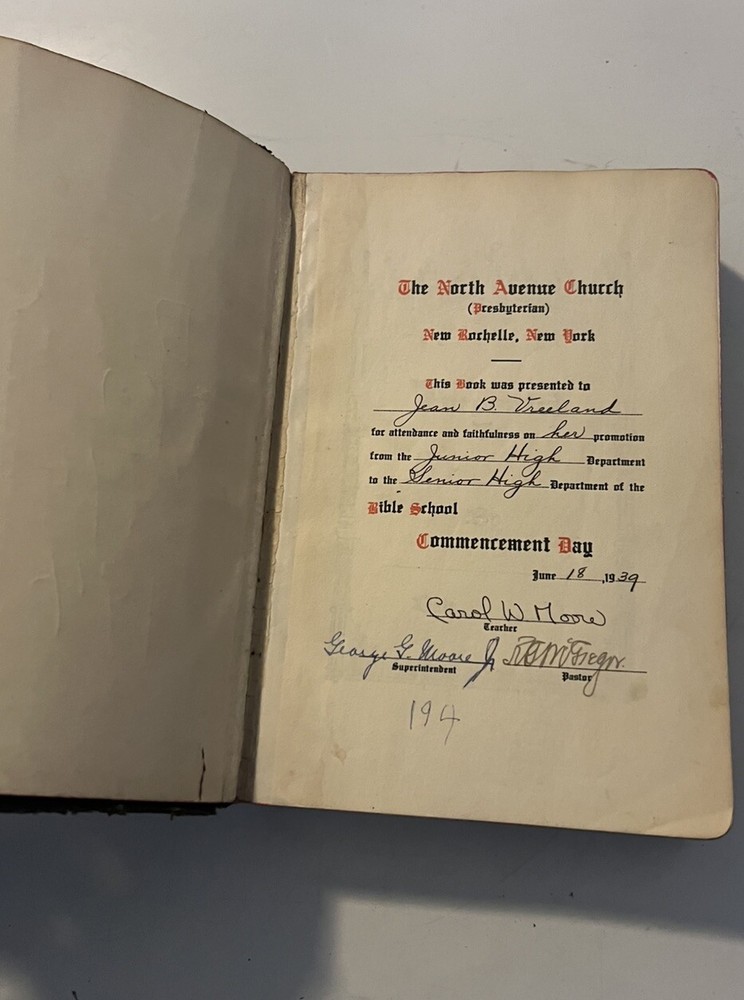 The North Avenue Church
(Presbyterian)
New Rochelle, New York
This Book was presented to
Jean B. Vreeland
for attendance and faithfulness on her promotion
from the Junior High Department
to the Senior High Department of the
Bible School
Commencement Day
June 18, 1939
Carol W Moore
Teacher
George G. Moore Jr
Superintendent Pastor
194